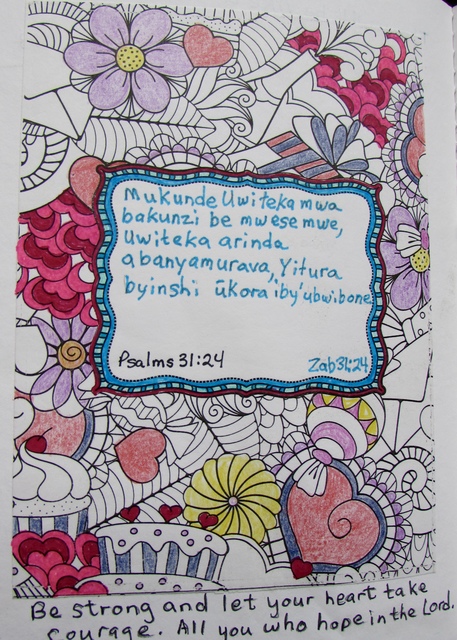 Mukunde Uwiteka mwa
bakunzi be mwese mwe,
Uwiteka arinda
abanyamurava, Yitura
byinshi ūkora iby'ubwibone
Psalms 31:24 Zab31:24
Be strong and let your heart take
courage. All you who hope in the Lord.